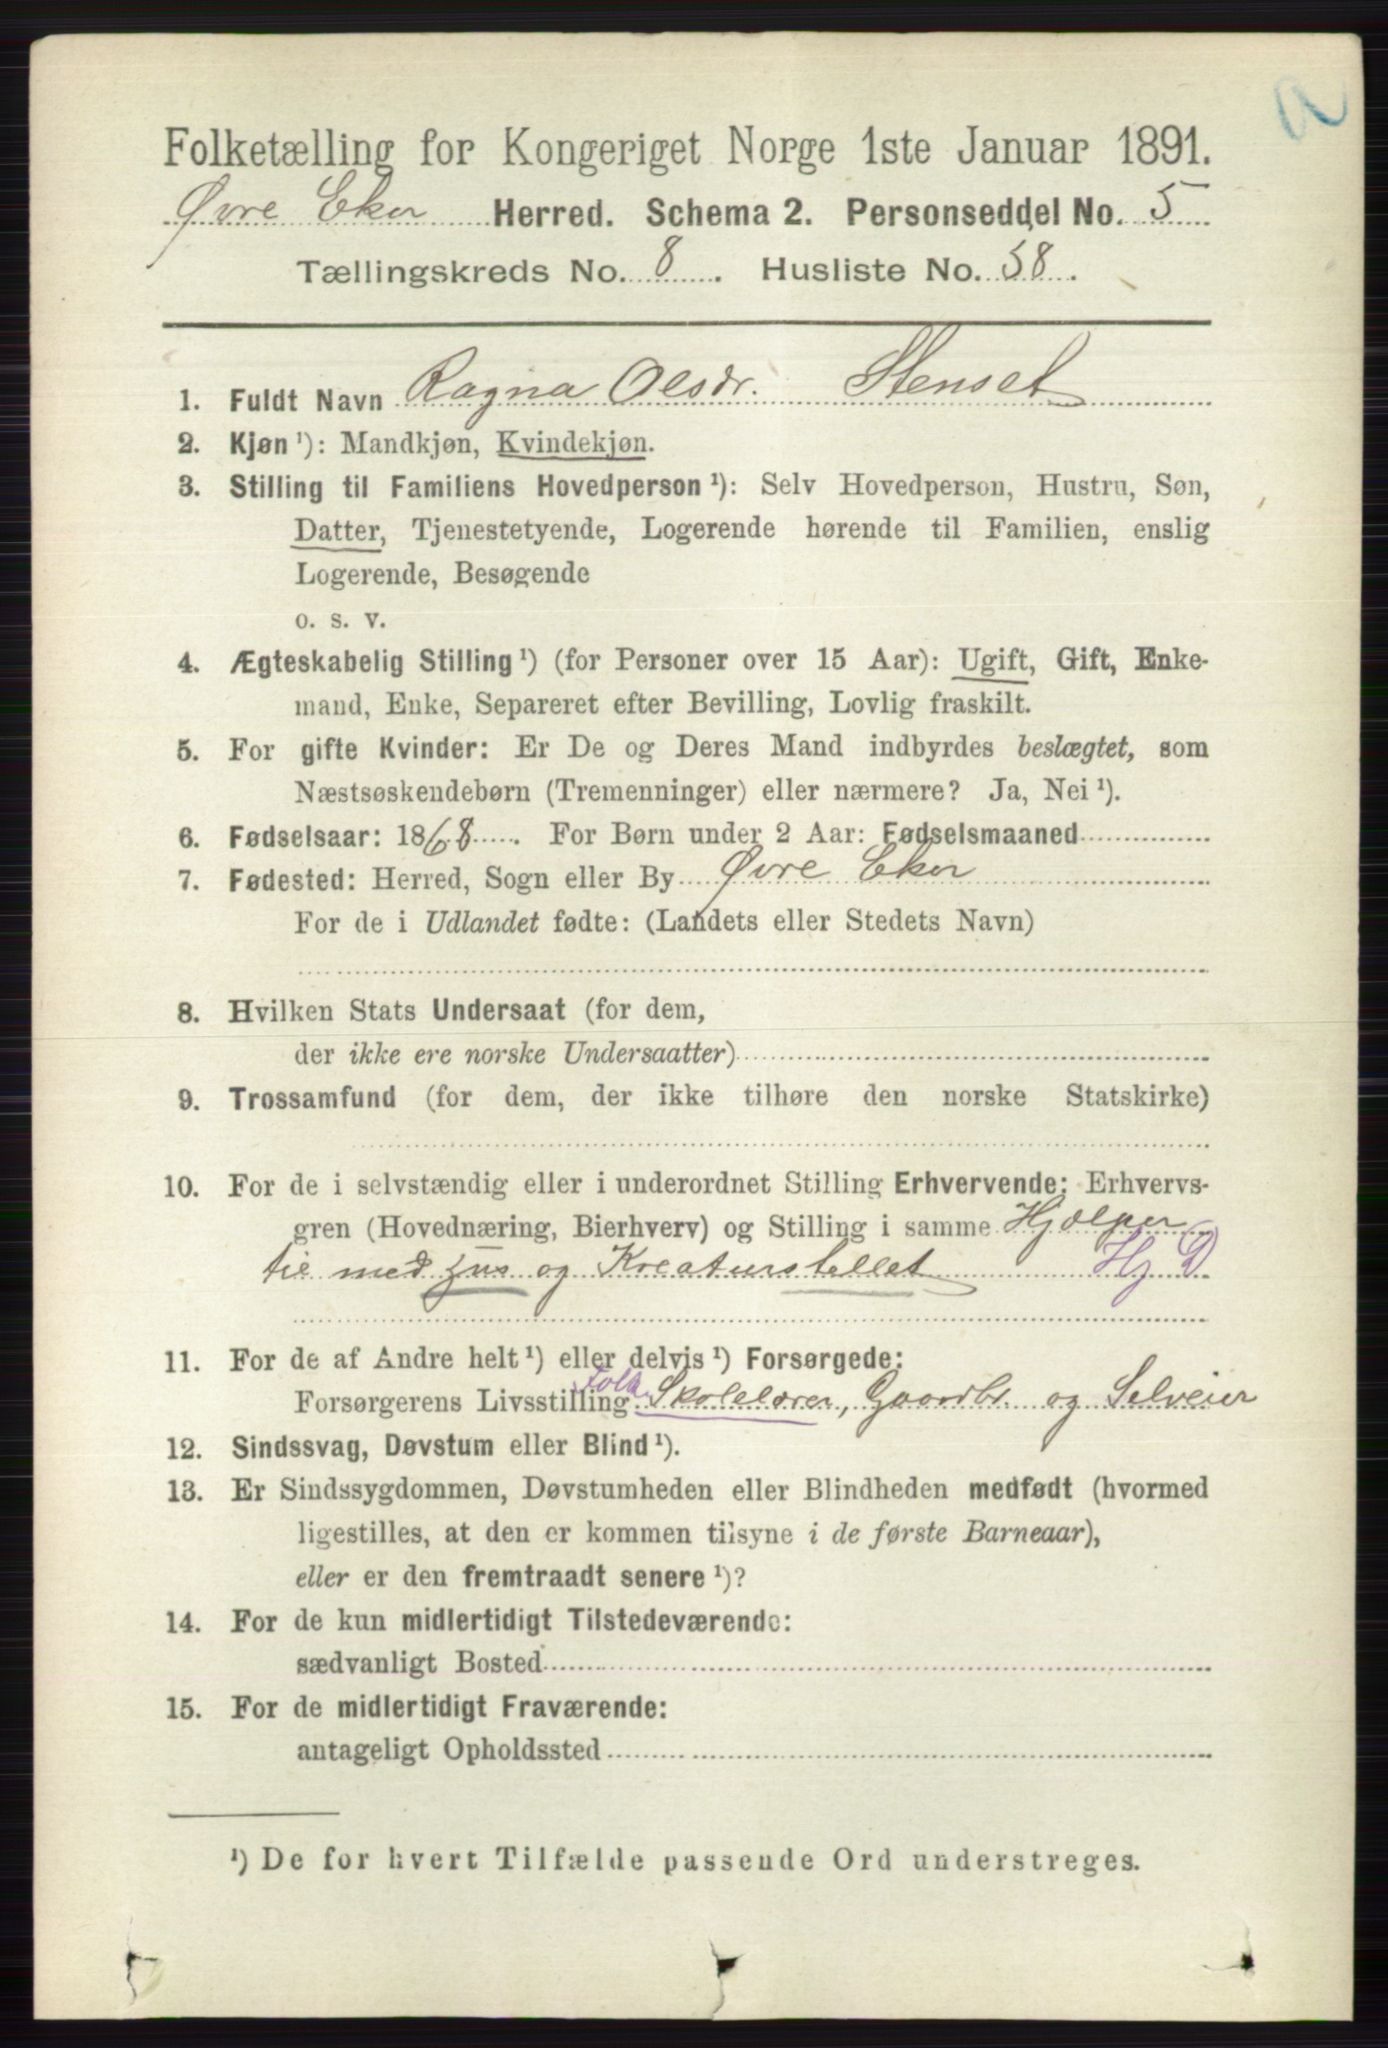 Folketælling for Kongeriget Norge 1ste Januar 1891.
Øvre Eker Herred. Schema 2. Personseddel No. 5
Tællingskreds No. 8. Husliste No. 58.
1. Fuldt Navn Ragna Olsdr. Stenset
2. Kjøn ¹): Mandkjøn, Kvindekjøn.
3. Stilling til Familiens Hovedperson ¹): Selv Hovedperson, Hustru, Søn,
Datter, Tjenestetyende, Logerende hørende til Familien, enslig
Logerende, Besøgende
o. s. v.
4. Ægteskabelig Stilling ¹) (for Personer over 15 Aar): Ugift, Gift, Enke-
mand, Enke, Separeret efter Bevilling, Lovlig fraskilt.
5. For gifte Kvinder: Er De og Deres Mand indbyrdes beslægtet, som
Næstsøskendebørn (Tremenninger) eller nærmere? Ja, Nei ¹).
6. Fødselsaar: 1868. For Børn under 2 Aar: Fødselsmaaned
7. Fødested: Herred, Sogn eller By Øvre Eker
For de i Udlandet fødte: (Landets eller Stedets Navn)
8. Hvilken Stats Undersaat (for dem,
der ikke ere norske Undersaatter)
9. Trossamfund (for dem, der ikke tilhøre den norske Statskirke)
10. For de i selvstændig eller i underordnet Stilling Erhvervende: Erhvervs-
gren (Hovednæring, Bierhverv) og Stilling i samme Hjælper
til med hus og Kreaturstellet Hj D
11. For de af Andre helt ¹) eller delvis ¹) Forsørgede:
Folk
Forsørgerens Livsstilling Skolelærer, Gaardbr. og Selveier
12. Sindssvag, Døvstum eller Blind ¹).
13. Er Sindssygdommen, Døvstumheden eller Blindheden medfødt (hvormed
ligestilles, at den er kommen tilsyne i de første Barneaar),
eller er den fremtraadt senere ¹)?
14. For de kun midlertidigt Tilstedeværende:
sædvanligt Bosted
15. For de midlertidigt Fraværende:
antageligt Opholdssted
¹) De for hvert Tilfælde passende Ord understreges.